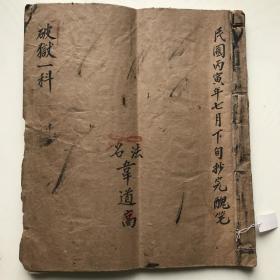 民國丙寅年七月下旬抄完醜笔
法名韋道高
破獄一科